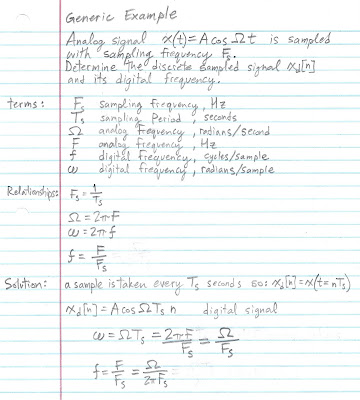 Generic Example
Analog signal x(t) = A cos Ωt is sampled
with sampling frequency Fs.
Determine the discrete sampled signal xd[n]
and its digital frequency.
terms: Fs sampling frequency, Hz
Ts sampling Period, seconds
Ω analog frequency, radians/second
F analog frequency, Hz
f digital frequency, cycles/sample
ω digital frequency, radians/sample
Relationships: Fs = 1/Ts
Ω = 2πF
ω = 2πf
f = F/Fs
Solution: a sample is taken every Ts seconds so: xd[n] = x(t=nTs)
xd[n] = A cos ΩTs n digital signal
ω = ΩTs = 2πF/Fs = Ω/Fs
f = F/Fs = Ω/2πFs